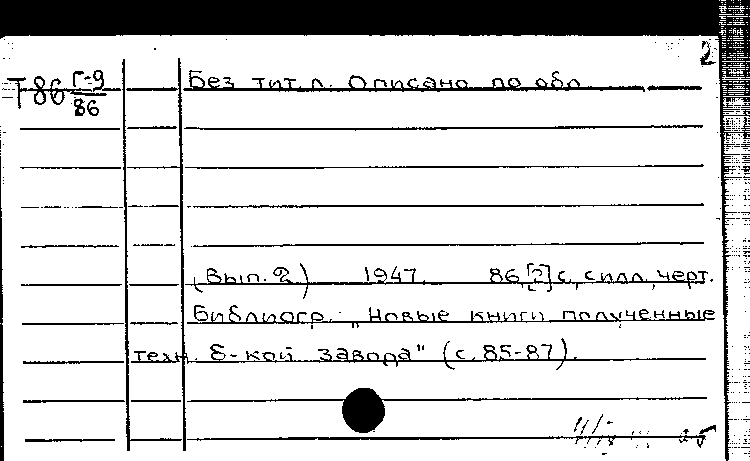 2
Т86 Г-9/86
Без тит. л. Описано по обл
(Вып. 2) 1947. 86, [2] с., с илл., черт.
Библиогр.: „Новые книги полученные
техн. б-кой завода" (с. 85-87).